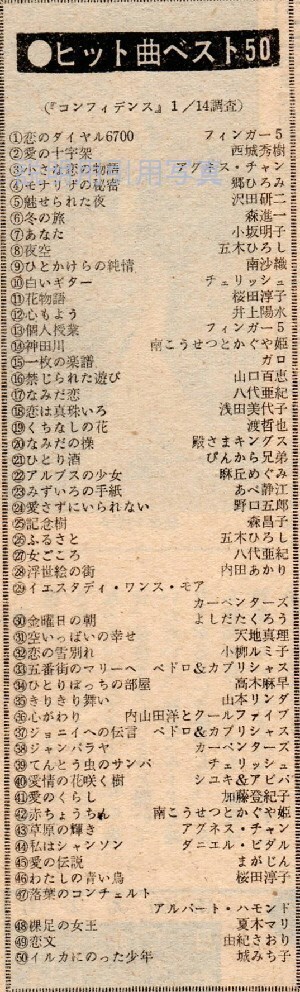 ●ヒット曲ベスト50
(『コンフィデンス』1/14調査)
①恋のダイヤル6700 フィンガー5
②愛の十字架 西城秀樹
③小さな恋の物語 アグネス・チャン
④モナリザの秘密 郷ひろみ
⑤魅せられた夜 沢田研二
⑥冬の旅 森進一
⑦あなた 小坂明子
⑧夜空 五木ひろし
⑨ひとかけらの純情 南沙織
⑩白いギター チェリッシュ
⑪花物語 桜田淳子
⑫心もよう 井上陽水
⑬個人授業 フィンガー5
⑭神田川 南こうせつとかぐや姫
⑮一枚の楽譜 ガロ
⑯禁じられた遊び 山口百恵
⑰なみだ恋 八代亜紀
⑱恋は真珠いろ 浅田美代子
⑲くちなしの花 渡哲也
⑳なみだの操 殿さまキングス
㉑ひとり酒 ぴんから兄弟
㉒アルプスの少女 麻丘めぐみ
㉓みずいろの手紙 あべ静江
㉔愛さずにいられない 野口五郎
㉕記念樹 森昌子
㉖ふるさと 五木ひろし
㉗女ごころ 八代亜紀
㉘浮世絵の街 内田あかり
㉙イエスタデイ・ワンス・モア
カーペンターズ
㉚金曜日の朝 よしだたくろう
㉛空いっぱいの幸せ 天地真理
㉜恋の雪別れ 小柳ルミ子
㉝五番街のマリーへ ペドロ&カプリシャス
㉞ひとりぼっちの部屋 高木麻早
㉟きりきり舞い 山本リンダ
㊱心がわり 内山田洋とクールファイブ
㊲ジョニイへの伝言 ペドロ&カプリシャス
㊳ジャンバラヤ カーペンターズ
㊴てんとう虫のサンバ チェリッシュ
㊵愛情の花咲く樹 シユキ&アビバ
㊶愛のくらし 加藤登紀子
㊷赤ちょうちん 南こうせつとかぐや姫
㊸草原の輝き アグネス・チャン
㊹私はシャンソン ダニエル・ビダル
㊺愛の伝説 まがじん
㊻わたしの青い鳥 桜田淳子
㊼落葉のコンチェルト
アルバート・ハモンド
㊽裸足の女王 夏木マリ
㊾恋文 由紀さおり
㊿イルカにのった少年 城みち子